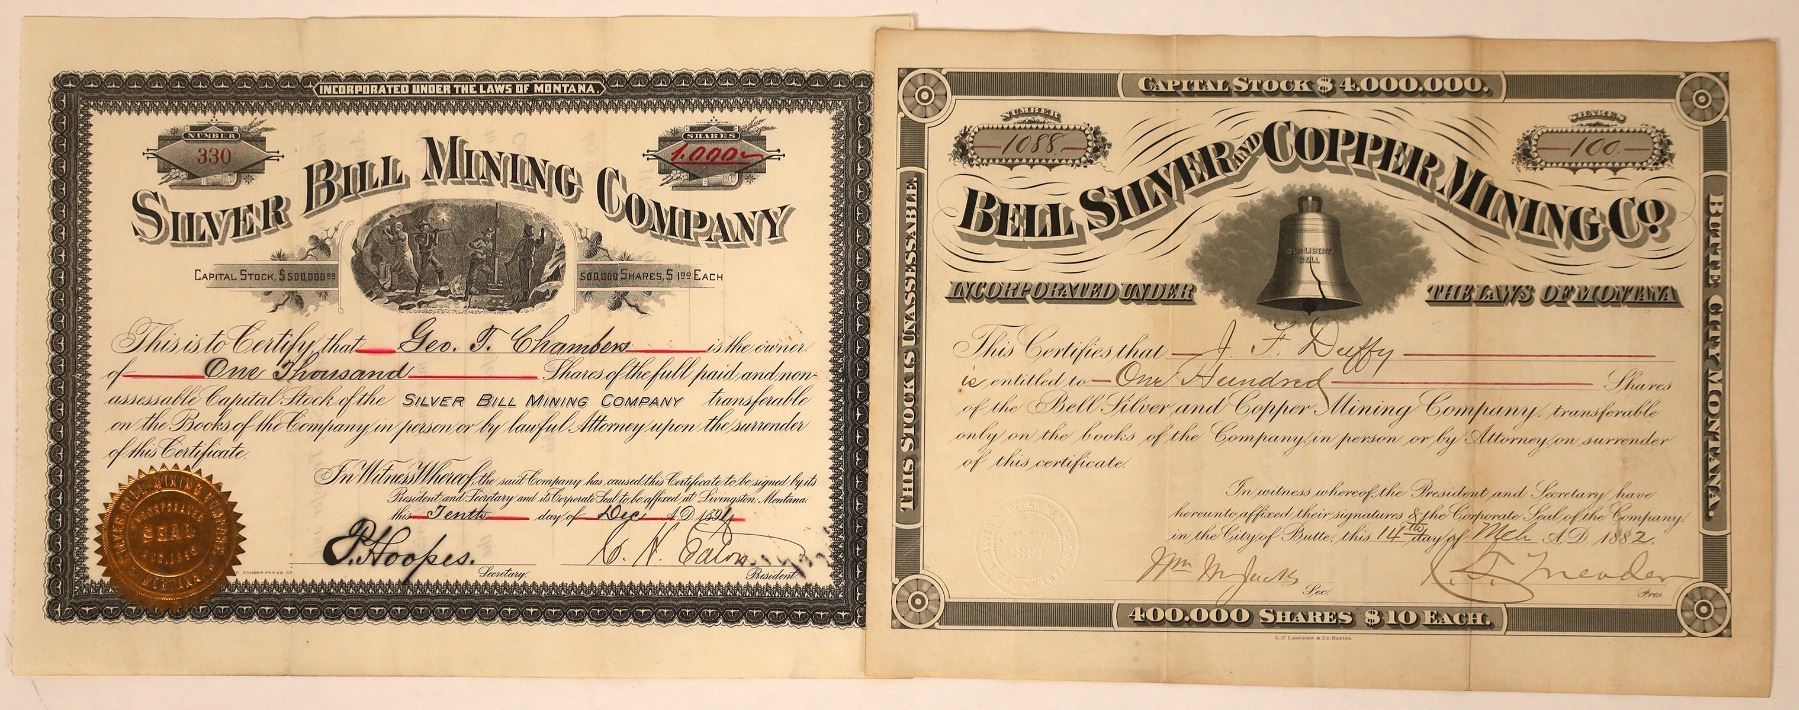 INCORPORATED UNDER THE LAWS OF MONTANA.
NUMBER
330
SHARES
1,000
SILVER BILL MINING COMPANY
CAPITAL STOCK, $500,000.00
500,000 SHARES, $1.00 EACH
This is to Certify that Geo. T. Chambers is the owner
of One Thousand Shares of the full paid and non-
assessable Capital Stock of the SILVER BILL MINING COMPANY transferable
on the Books of the Company in person or by lawful Attorney upon the surrender
of this Certificate.
In Witness Whereof, the said Company has caused this Certificate to be signed by its
President and Secretary and its Corporate Seal to be affixed at Livingston, Montana:
this Tenth day of Dec A.D. 1894
P. Hoopes. Secretary. C. H. Eaton President.
SILVER BILL MINING COMPANY
INCORPORATED
SEAL
MONTANA
CAPITAL STOCK $4.000.000.
NUMBER
1088
SHARES
100
BELL SILVER AND COPPER MINING CO.
OLD LIBERTY
BELL
INCORPORATED UNDER THE LAWS OF MONTANA
THIS STOCK IS UNASSESSABLE.
BUTTE CITY MONTANA.
This Certifies that J. F. Duffy
is entitled to One Hundred Shares
of the Bell Silver and Copper Mining Company, transferable
only on the books of the Company in person or by Attorney on surrender
of this certificate.
In witness whereof the President and Secretary have
hereunto affixed their signatures & the Corporate Seal of the Company
in the City of Butte, this 14th day of Mch A.D. 1882.
Sec. Pres.
1881
400.000 SHARES $10 EACH.